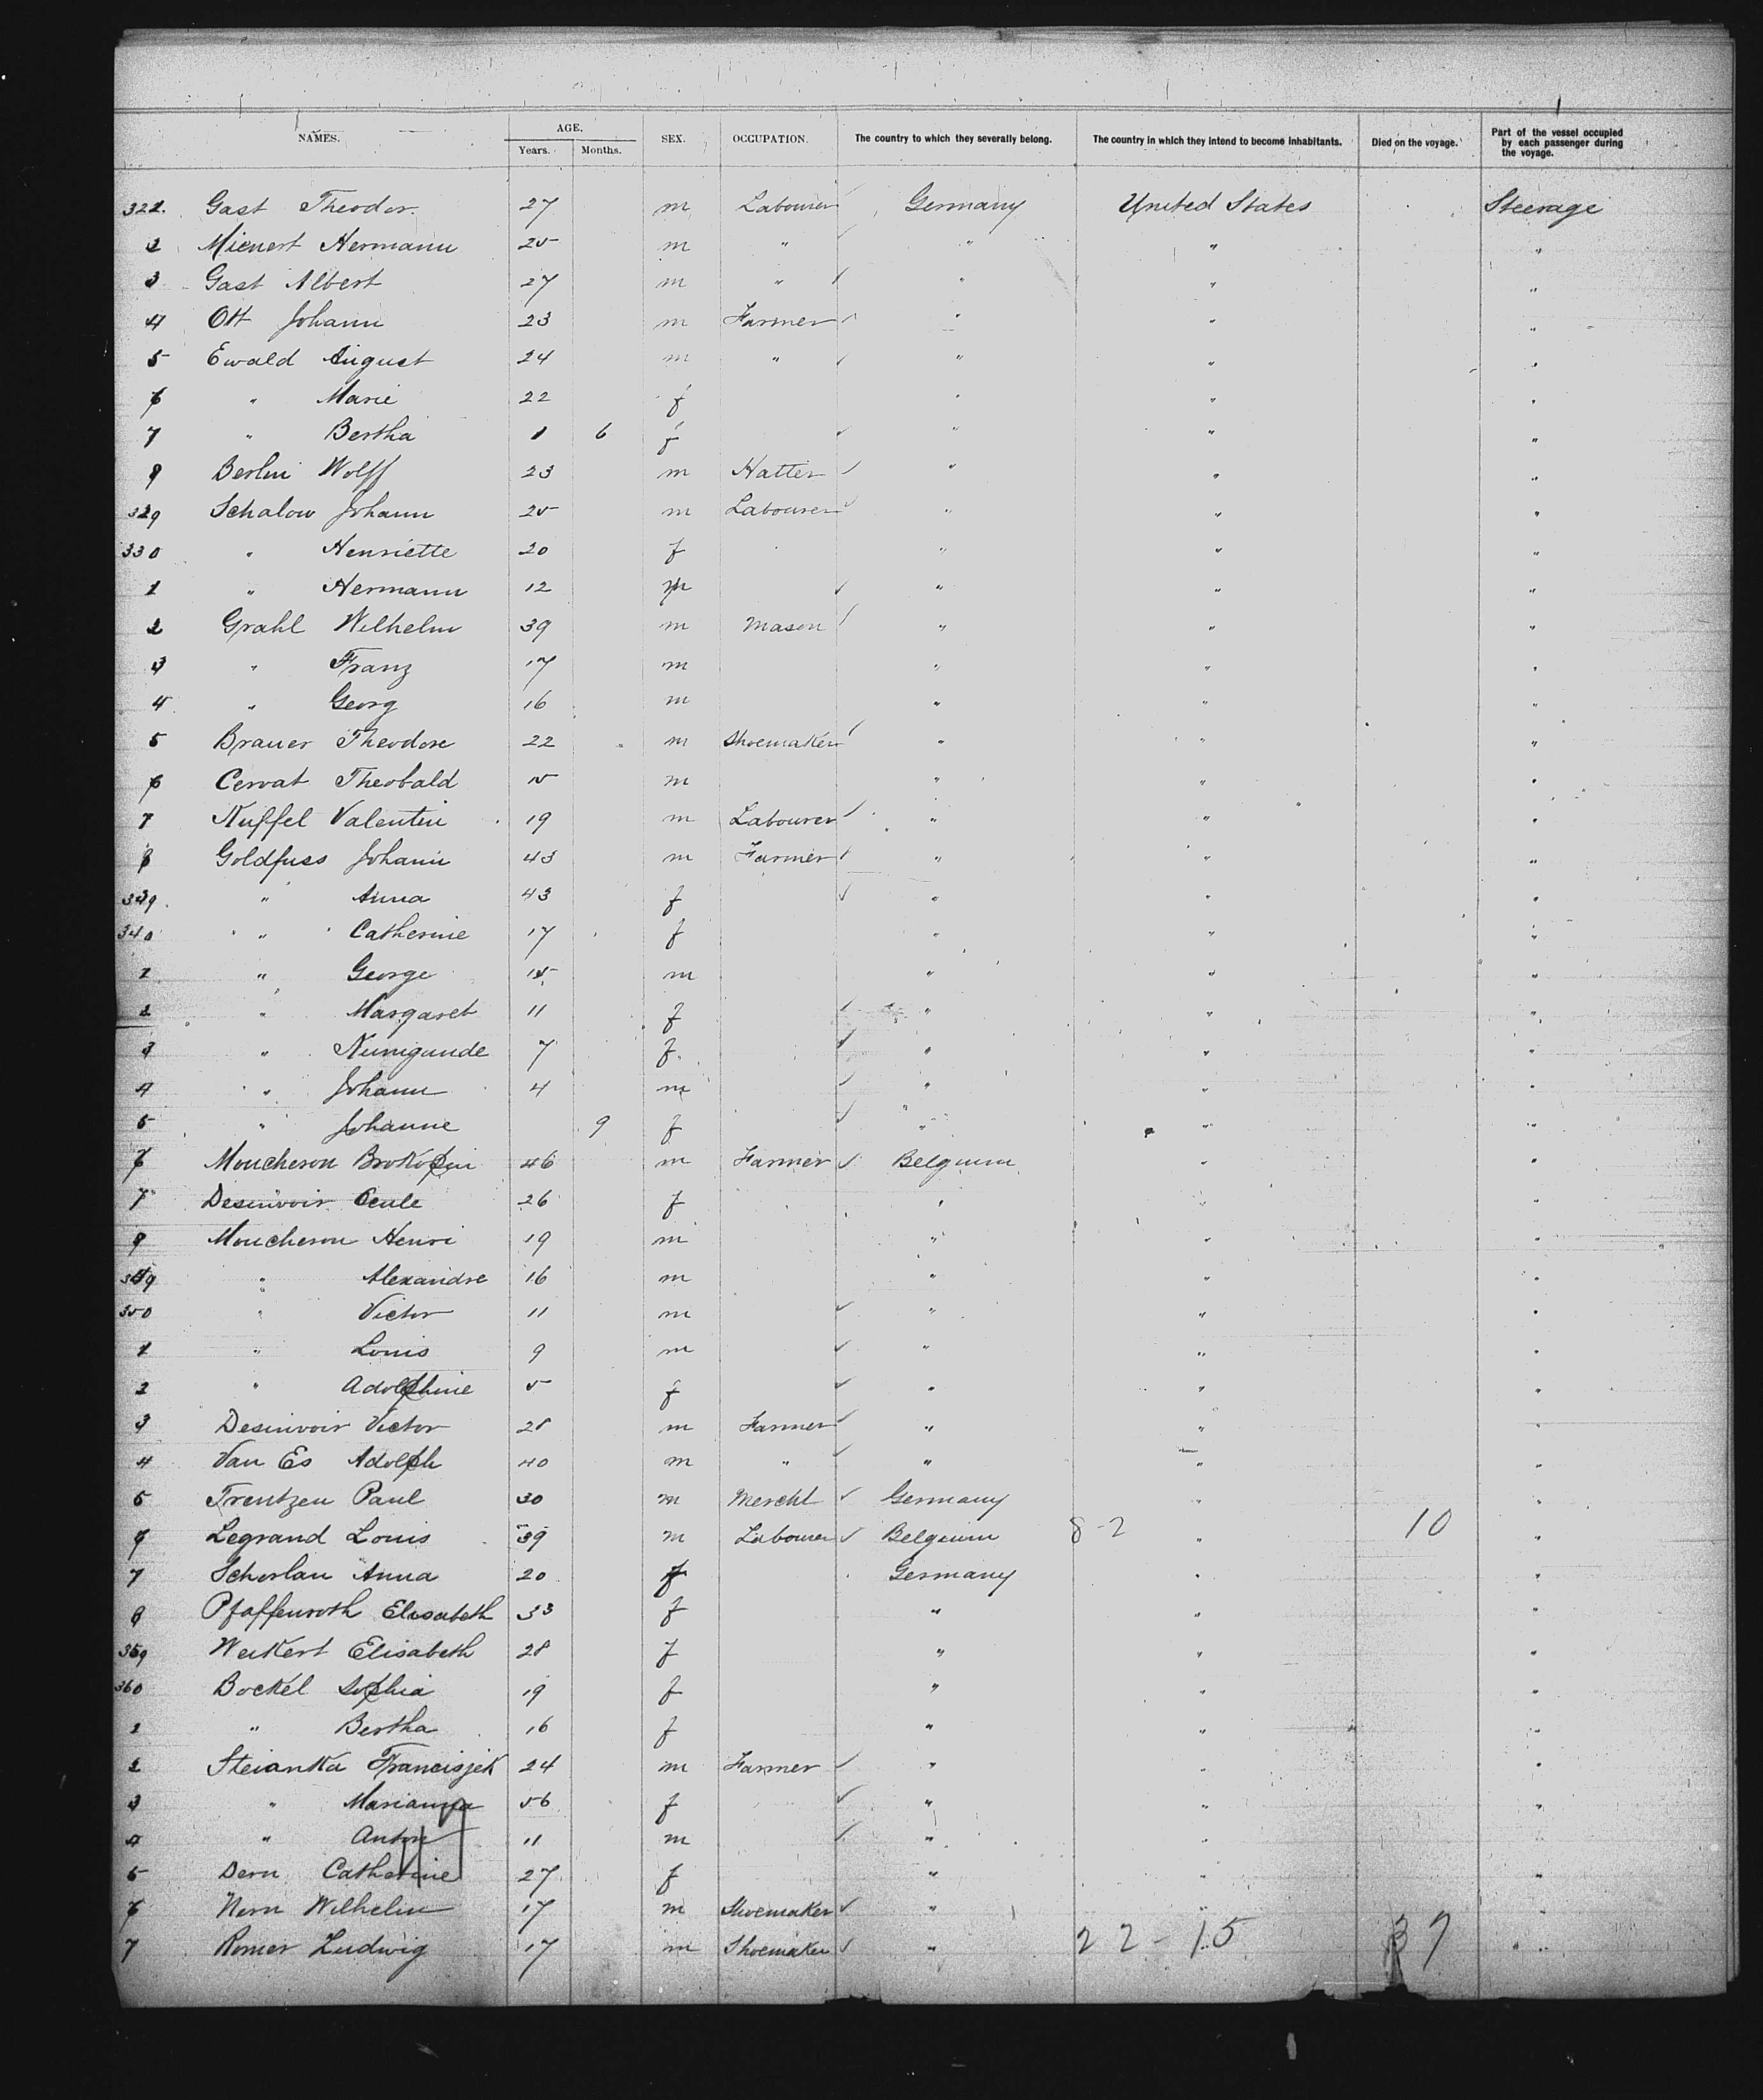 NAMES. AGE. SEX. OCCUPATION. The country to which they severally belong. The country in which they intend to become inhabitants. Died on the voyage. Part of the vessel occupied by each passenger during the voyage.
Years. Months.
321. Gast Theodor. 27 m Labourer Germany United States Steerage
2 Mienert Hermann 25 m " " " "
3 Gast Albert 27 m " " " "
4 Ott Johann 23 m Farmer " " "
5 Ewald August 24 m " " " "
6 " Marie 22 f " " "
7 " Bertha 1 6 f " " "
8 Berlin Wolff 23 m Hatter " " "
329 Schalow Johann 25 m Labourer " " "
330 " Henriette 20 f " " "
1 " Hermann 12 m " " "
2 Grahl Wilhelm 39 m Mason " " "
3 " Franz 17 m " " "
4 " Georg 16 m " " "
5 Brauer Theodore 22 m Shoemaker " " "
6 Cervat Theobald 15 m " " "
7 Kuffel Valentin 19 m Labourer " " "
8 Goldfuss Johann 43 m Farmer " " "
339 " Anna 43 f " " "
340 " Catherine 17 f " " "
1 " George 15 m " " "
2 " Margaret 11 f " " "
3 " Kunigunde 7 f " " "
4 " Johann 4 m " " "
5 " Johanne 9 f " " "
6 Moucheron 46 m Farmer Belgium " "
7 Desinvoir 26 f " " "
8 Moucheron Henri 19 m " " "
349 " Alexandre 16 m " " "
350 " Victor 11 m " " "
1 " Louis 9 m " " "
2 " Adolphine 5 f " " "
3 Desinvoir Victor 28 m Farmer " " "
4 Van Es Adolph 40 m " " " "
5 Trentzen Paul 30 m Mercht Germany " "
6 Legrand Louis 39 m Labourer Belgium 8-2 " 10 "
7 Scherlau Anna 20 f Germany " "
8 Pfaffenroth Elisabeth 33 f " " "
359 Weikert Elisabeth 28 f " " "
360 Bockel Sophia 19 f " " "
1 " Bertha 16 f " " "
2 Steianka Francisjek 24 m Farmer " " "
3 " Marianna 56 f " " "
4 " Anton 11 m " " "
5 Dern Catherine 27 f " " "
6 Nern Wilhelm 17 m Shoemaker " " "
7 Romer Ludwig 17 m Shoemaker " 22-15 37 "